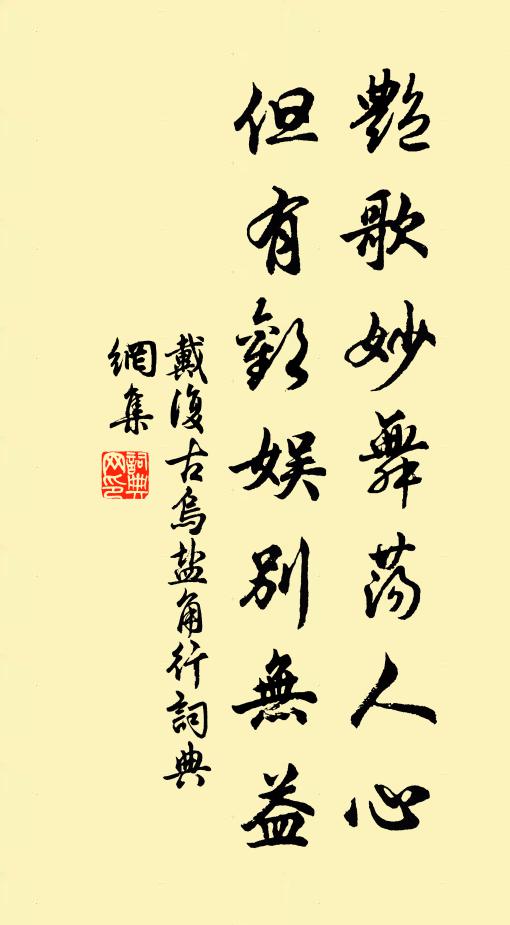 艷歌妙舞蕩人心
但有歡娛別無益
戴復古烏盐角行詞典
網集
詞典网印